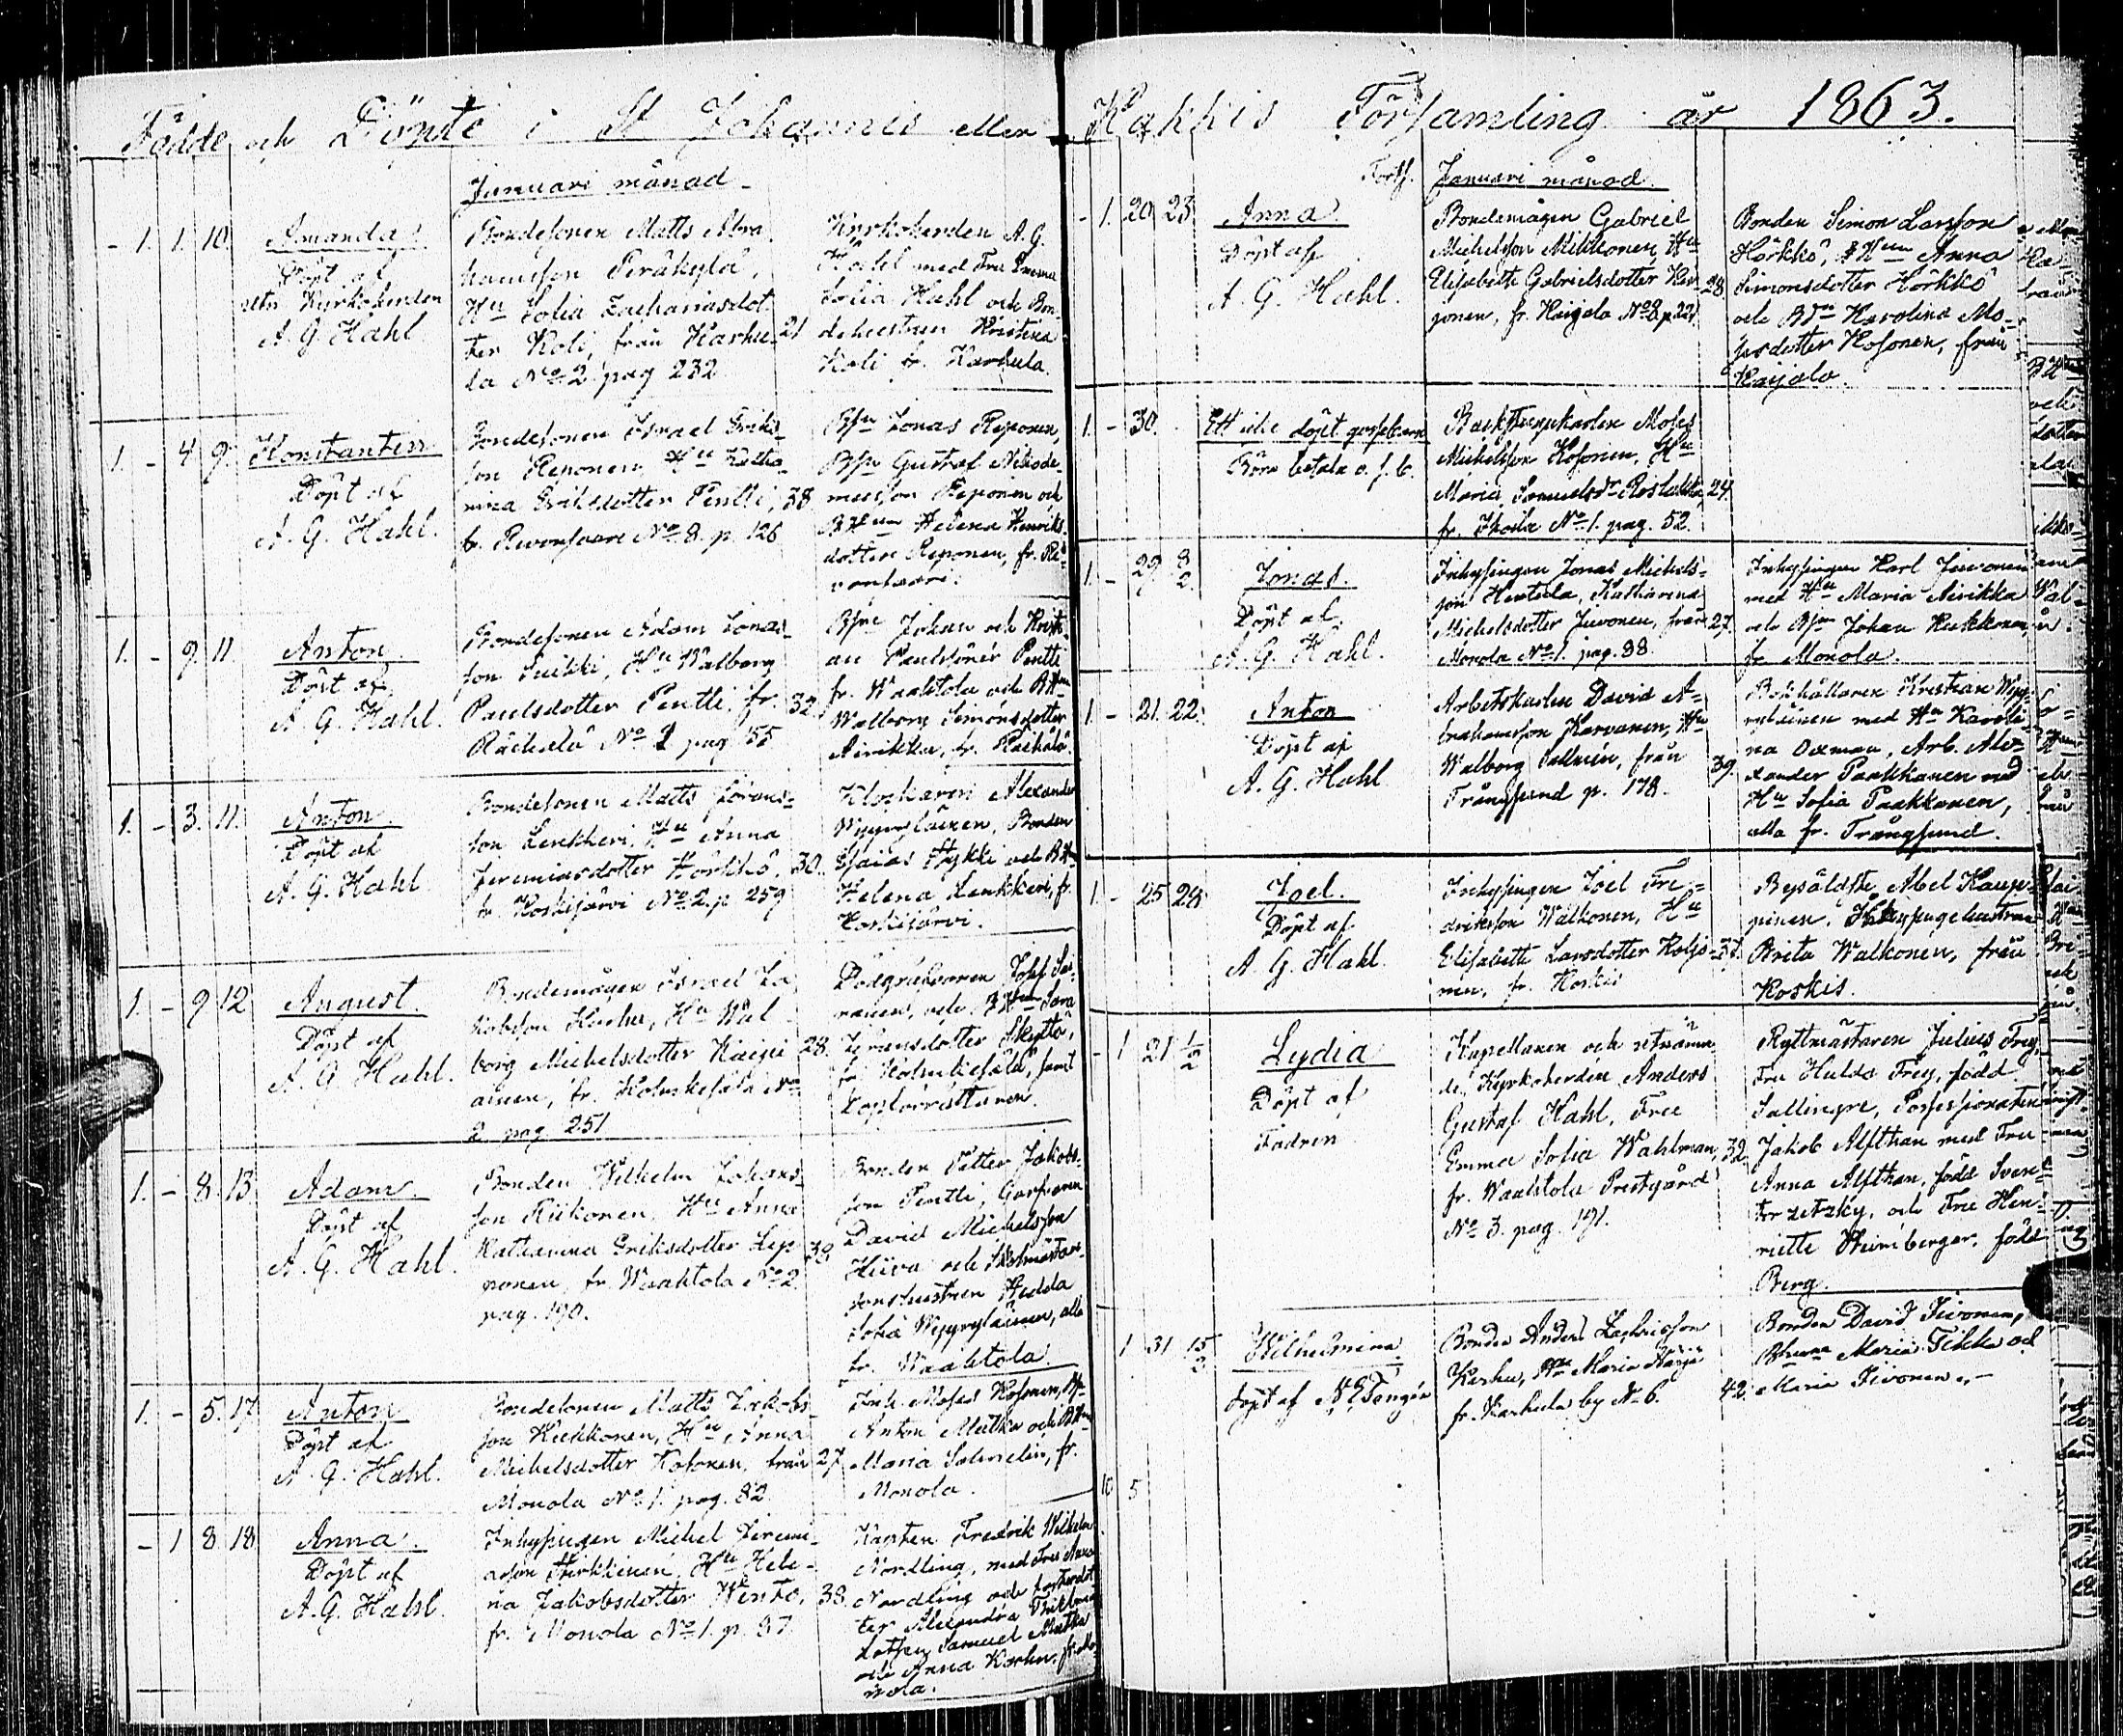 Födde och Döpte i St Johannis eller Kakkis Församling år 1863.
Januari månad
- 1. 1. 10. Amanda.
Döpt af
Kyrkoherden
A. G. Hahl
Bondesonen Matts Abra
hamsson Peräkylä,
Hu Sofia Zachariasdot
ter Koli, från Karhu 21
la No 2 pag 232
Kyrkoherden A. G.
Hahl med Fru Emma
Sofia Hahl och Bon
dehustrun Kristina
Koli fr. Karhula.
1. - 4 9. Konstantin
Döpt af
A. G. Hahl.
Bondesonen Israel Eriks
son Reponen Hu Katha
rina Eriksdotter Pentti, 38
fr. Revonsaari No 8. p. 126
Bsn Jonas Reponen,
Bsn Gustaf Nikode
musson Reponen och
BHun Helena Henriks
dotter Reponen, fr. Re
vonsaari.
1. - 9. 11. Anton.
Döpt af
A. G. Hahl.
Bondesonen Adam Jonas
son Suikki, Hu Walborg
Paulsdotter Pentti, fr. 32
No 2 pag 55
Bsne Johan och Kristi
an Paulssöner Pentti
fr. Waahtola och BHun
Walborg Simonsdotter
Airikka, fr.
1. - 3. 11. Anton.
Döpt af
A. G. Hahl
Bondesonen Matts Görans
son Leukkeri, Hu Anna
Jeremiasdotter Hörkkö, 30.
fr. Koskijärvi No 2. p 259
Klockaren Alexander
Wyyryläinen, Bonden
Esaias Hykki och BHun
Helena Leukkeri, fr.
Koskijärvi.
1. - 9 12 August.
Döpt af
A. G. Hahl.
Bondemågen Israel Ja
kobsson Karhu, Hu Wal
borg Michelsdotter Kaipi 28.
ainen, fr. No
2 pag. 251
Dödgräfvaren Josef
och BHun Sara
Göransdotter Skyttä,
fr. samt
1. - 8. 13. Adam.
Döpt af
A. G. Hahl.
Bonden Wilhelm Johans
son Riikonen, Hu Anna
Katharina Eriksdotter Lep 38
ponen, fr. Waahtola No 2
pag. 190.
Bonden Petter Jakobs
son Pentti, Garfvaren
David Michelsson
Hiiva och Skolmästar
hustrun Hedda
Sofia Wyyryläinen, alla
fr. Waahtola.
1. - 5. 17 Anton
Döpt af
A. G. Hahl.
Bondesonen Matts Jakobs
son Kukkonen, Hu Anna
Michelsdotter Kosonen, från 27
Monola No 1. pag. 82
Inh. Moses Kosonen, Bsn
Anton Matka och BHun
Maria Salmelin, fr.
Monola.
- 1 8 18. Anna.
Döpt af
A. G. Hahl.
Inhysingen Michel Jeremi
asson Hirkkinen, Hu Hele
na Jakobsdotter Wento, 38.
fr. Monola No 1. p. 97
Kapten Fredrik Wilhelm
Nordling, med Fru Anna
Nordling och fosterdot
ter Alexandra
Lotsen Samuel Matka
och Anna Karhu, fr. Mo
nola.
Forts. Januari månad.
- 1. 20 23. Anna
Döpt af
A. G. Hahl.
Bondemågen Gabriel
Michelsson Mikkonen, Hu
Elisabeth Gabrielsdotter Kar 28
jonen, fr. Kaijala No 8 p. 221.
Bonden Simon Larsson
Hörkkö, BHun Anna
Simonsdotter Hörkkö
och Karolina Mo
sesdotter Kosonen, från
Kaijala.
1. - 30. Ett icke döpt gossebarn
Böra betala o. s. v.
Moses
Michelsson Kosonen, Hu
Maria Samuelsdr 24.
fr. No 1. pag. 52.
1. - 29 8/2 Jonas.
Döpt af
A. G. Hahl.
Inhysingen Jonas Michels
son Huttula, Katharina
Michelsdotter Juvonen, från 27.
Monola No 1. pag. 88.
Inhysingen Karl Juvonen
med Hu Maria Airikka
och Bsn Johan Kukkonen,
fr. Monola.
1. - 21. 22. Anton
Döpt af
A. G. Hahl
Arbetskarlen David A
brahamsson Karvanen, Hu
Walborg Sallinén, från 39.
Trångsund p. 178.
Bokhållaren Kristian Wyy
ryläinen med Hu Karoli
na Oxman, Arb. Alex
ander Paakkanen med
Hu Sofia Paakkanen,
alla fr. Trångsund.
1. - 25 28 Joel.
Döpt af
A. G. Hahl.
Inhysingen Joel Fre
driksson Walkonen, Hu
Elisabeth Larsdotter Koljo 37.
nen, fr. Koskis
Abel Kaup
pinen, Inhysingehustrun
Brita Walkonen, från
Koskis.
- 1 21 1/2 Lydia
Döpt af
Fadren
Kapellanen och utnämn
de Kyrkoherden Anders
Gustaf Hahl, Fru
Emma Sofia Wahlman, 32
fr. Waahtola Prestgård
No 3. pag. 191.
Ryttmästaren Julius Frey,
Fru Hulda Frey, född
Sallingre, Possessionaten
Jakob Alfthan med Fru
Anna Alfthan, född Svene
torzetzky, och Fru Hen
riette Steinberger, född
Berg.
1 31 15/2 Wilhelmina
döpt af
Bonden Anders Zachrisson
Karhu, Hu Maria
fr. Karhula by No 6. 42.
Bonden David Tivonen,
Maria Tikka och
Maria Tivonen. -
10 5